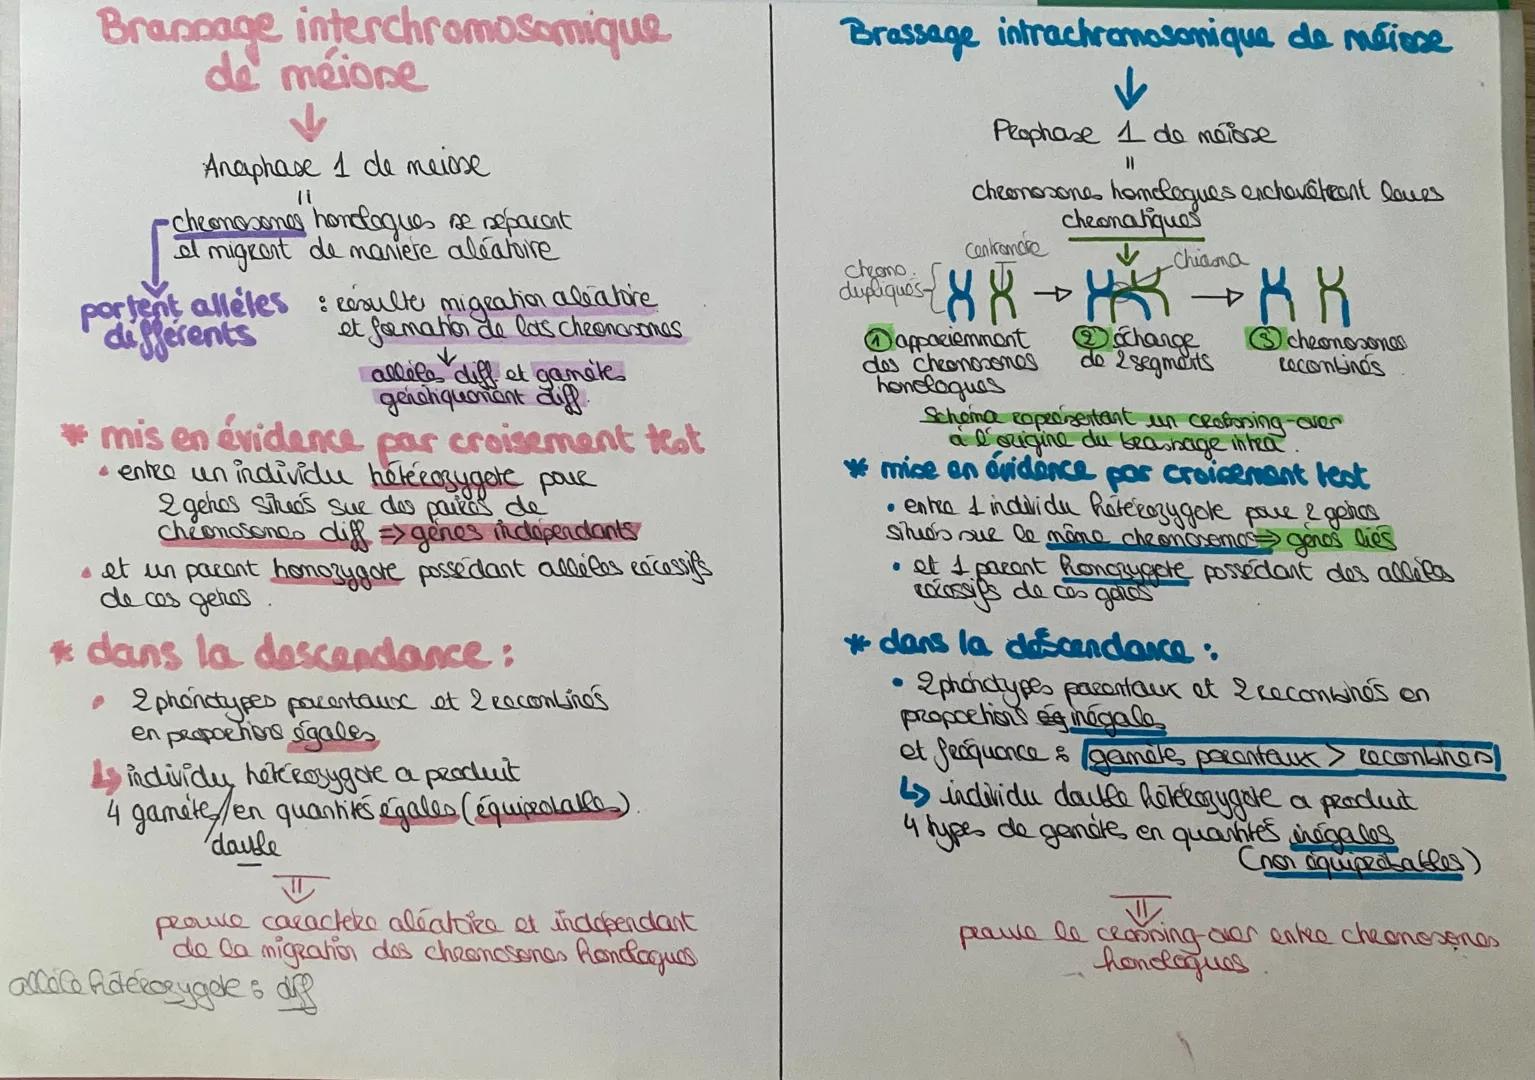 Brassage interchromosomique
de méiose
↓
Anaphase 1 de meiose
=
chromosomes homologues se séparent
et migrent de manière aléatoire
portent allèles
différents
: résulte migration aléatoire
et formation de lots chromosomes
↓
allèles diff et gamètes
génétiquement diff.
* mis en évidence par croisement test
• entre un individu hétérozygote pour
2 gènes situés sur des paires de
chromosomes diff => gènes indépendants
• et un parent homozygote possédant allèles récessifs
de ces gènes.
* dans la descendance :
• 2 phénotypes parentaux et 2 recombinés
en proportions égales
↳ individu hétérozygote a produit
4 gamètes/en quantités égales (équiprobables).
double
prouve caractère aléatoire et indépendant
de la migration des chromosomes homologues
allèle hétérozygote : diff
Brassage intrachromosomique de méiose
↓
Prophase 1 de méiose
=
chromosomes homologues enchevêtrent leurs
chromatiques
centromère
Chiasma
chromo.
dupliqués
→ →
① appariemment
des chromosomes
homologues
② échange
de 2 segments
③ chromosomes
recombinés
Schéma représentant un crossing-over
à l'origine du brassage intra.
* mise en évidence par croisement test
• entre 1 individu hétérozygote pour 2 gènes
situés sur le même chromosomes => gènes liés
• et 1 parent homozygote possédant des allèles
récessifs de ces gènes
* dans la déscendance :
• 2 phénotypes parentaux et 2 recombinés en
proportions ég inégales
et fréquence : gamètes parentaux > recombinés
↳ individu double hétérozygote a produit
4 types de gamètes en quantités inégales
(non équiprobables)
prouve le crossing-over entre chromosomes
homologues.